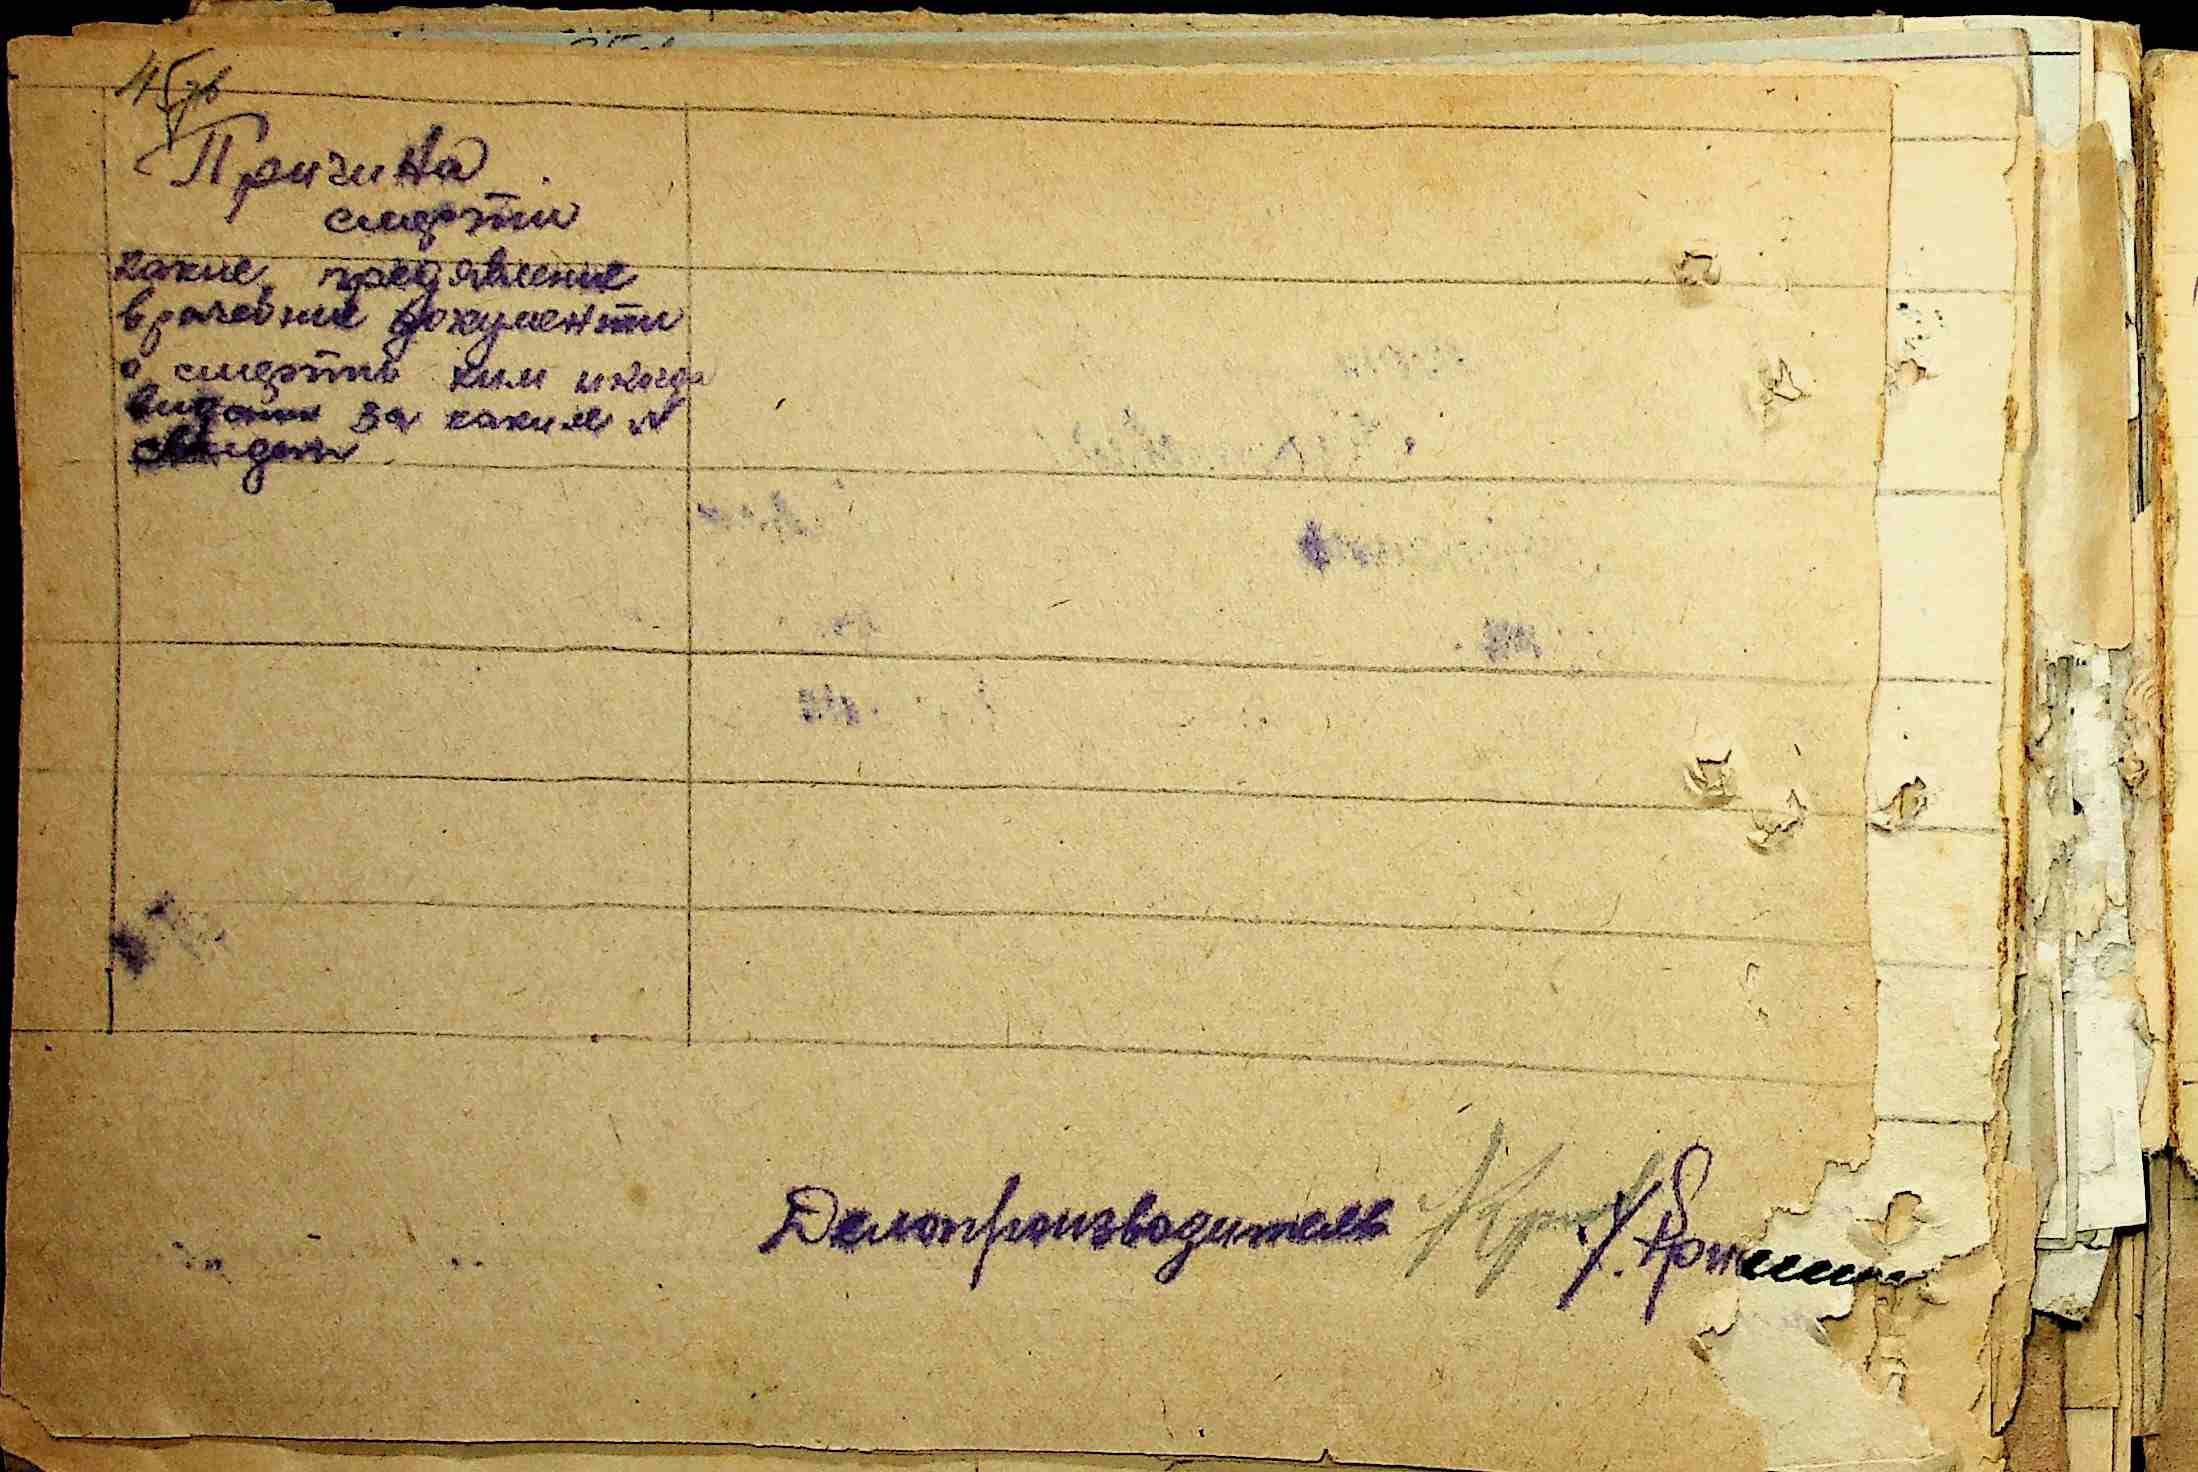 45 зв
Причина
смерти
какие предявление
врачебние документи
о смерти ким и когда
видани за каким №
свидет
Делопроизводитель